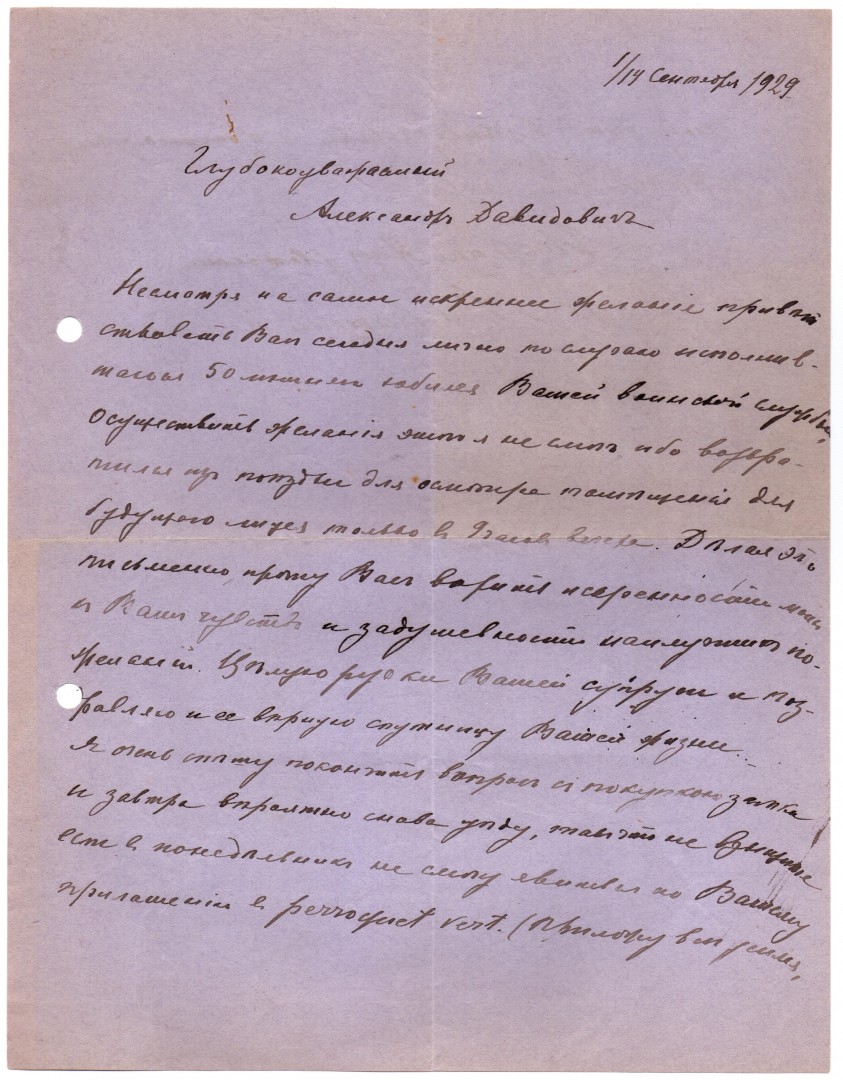 1/14 Сентября 1929
Глубокоуважаемый
Александръ Давидовичъ
Несмотря на самое искреннее желаніе привѣт
ствовать Васъ сегодня лично по случаю исполнив-
шагося 50 лѣтняго юбилея Вашей воинской службы,
осуществить желанія этого я не смогъ ибо возвра-
тился изъ поѣздки для осмотра помѣщенія для
будущаго лицея только в 9 часовъ вечера. Дѣлая это
письменно прошу Васъ вѣрить искренности моихъ
к Вамъ чувствъ и задушевности наилучшихъ по-
желаній. Цѣлую ручки Вашей супруги и поз-
равляю и ее вѣрную спутницу Вашей жизни.
Я очень спѣшу покончить вопросъ съ покупкою замка
и завтра вѣроятно снова уѣду, такъ что не взыщите
если в понедѣльникъ не смогу явиться по Вашему
приглашенію в perroquet vert. (Приложу все усилія,